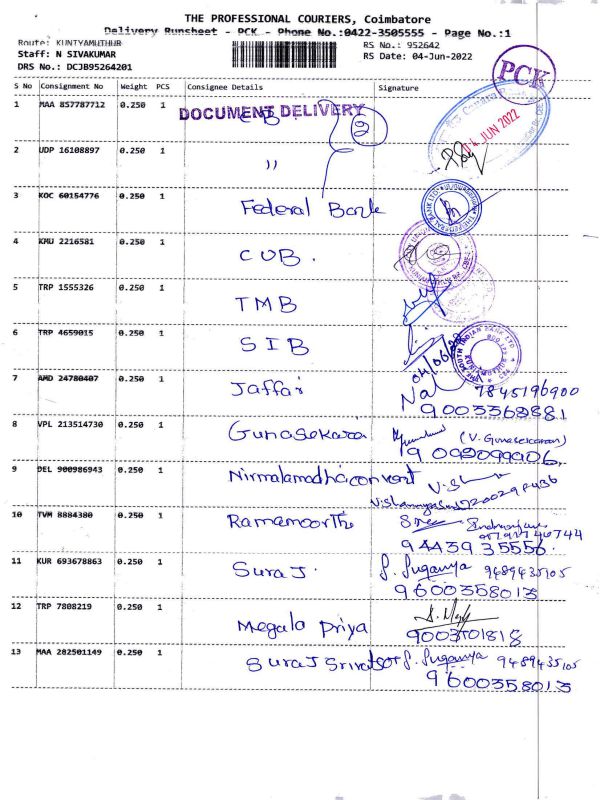 THE PROFESSIONAL COURIERS, Coimbatore
Delivery Runsheet - PCK - Phone No.:0422-3505555 - Page No.:1
Route: KUNIYAMUTHUR
RS No.: 952642
Staff: N SIVAKUMAR
RS Date: 04-Jun-2022
DRS No.: DCJB95264201
PCK
S No Consignment No Weight PCS Consignee Details Signature
1 MAA 857787712 0.250 1 CUB
DOCUMENT DELIVERY
2
04 JUN 2022
2 UDP 16108897 0.250 1 ''
3 KOC 60154776 0.250 1 Federal Bank
4 KMU 2216581 0.250 1 CUB.
5 TRP 1555326 0.250 1 TMB
6 TRP 4659015 0.250 1 SIB
THE SOUTH INDIAN BANK LTD
04/06/22
7 AMD 24780407 0.250 1 Jaffar
7845196900
9003362881
8 VPL 213514730 0.250 1 Gunasekaran
(V. Gunasekaran)
9 DEL 900986943 0.250 1 Nirmalamadha convent
10 TVM 8884380 0.250 1 Ramamoorthi
9443935556.
11 KUR 693678863 0.250 1 Suraj. S. Suganya 9489435105
9600358013
12 TRP 7808219 0.250 1 Megala Priya
9003501818
13 MAA 282501149 0.250 1 Suraj Srivatsor S. Suganya 9489435105
9600358013